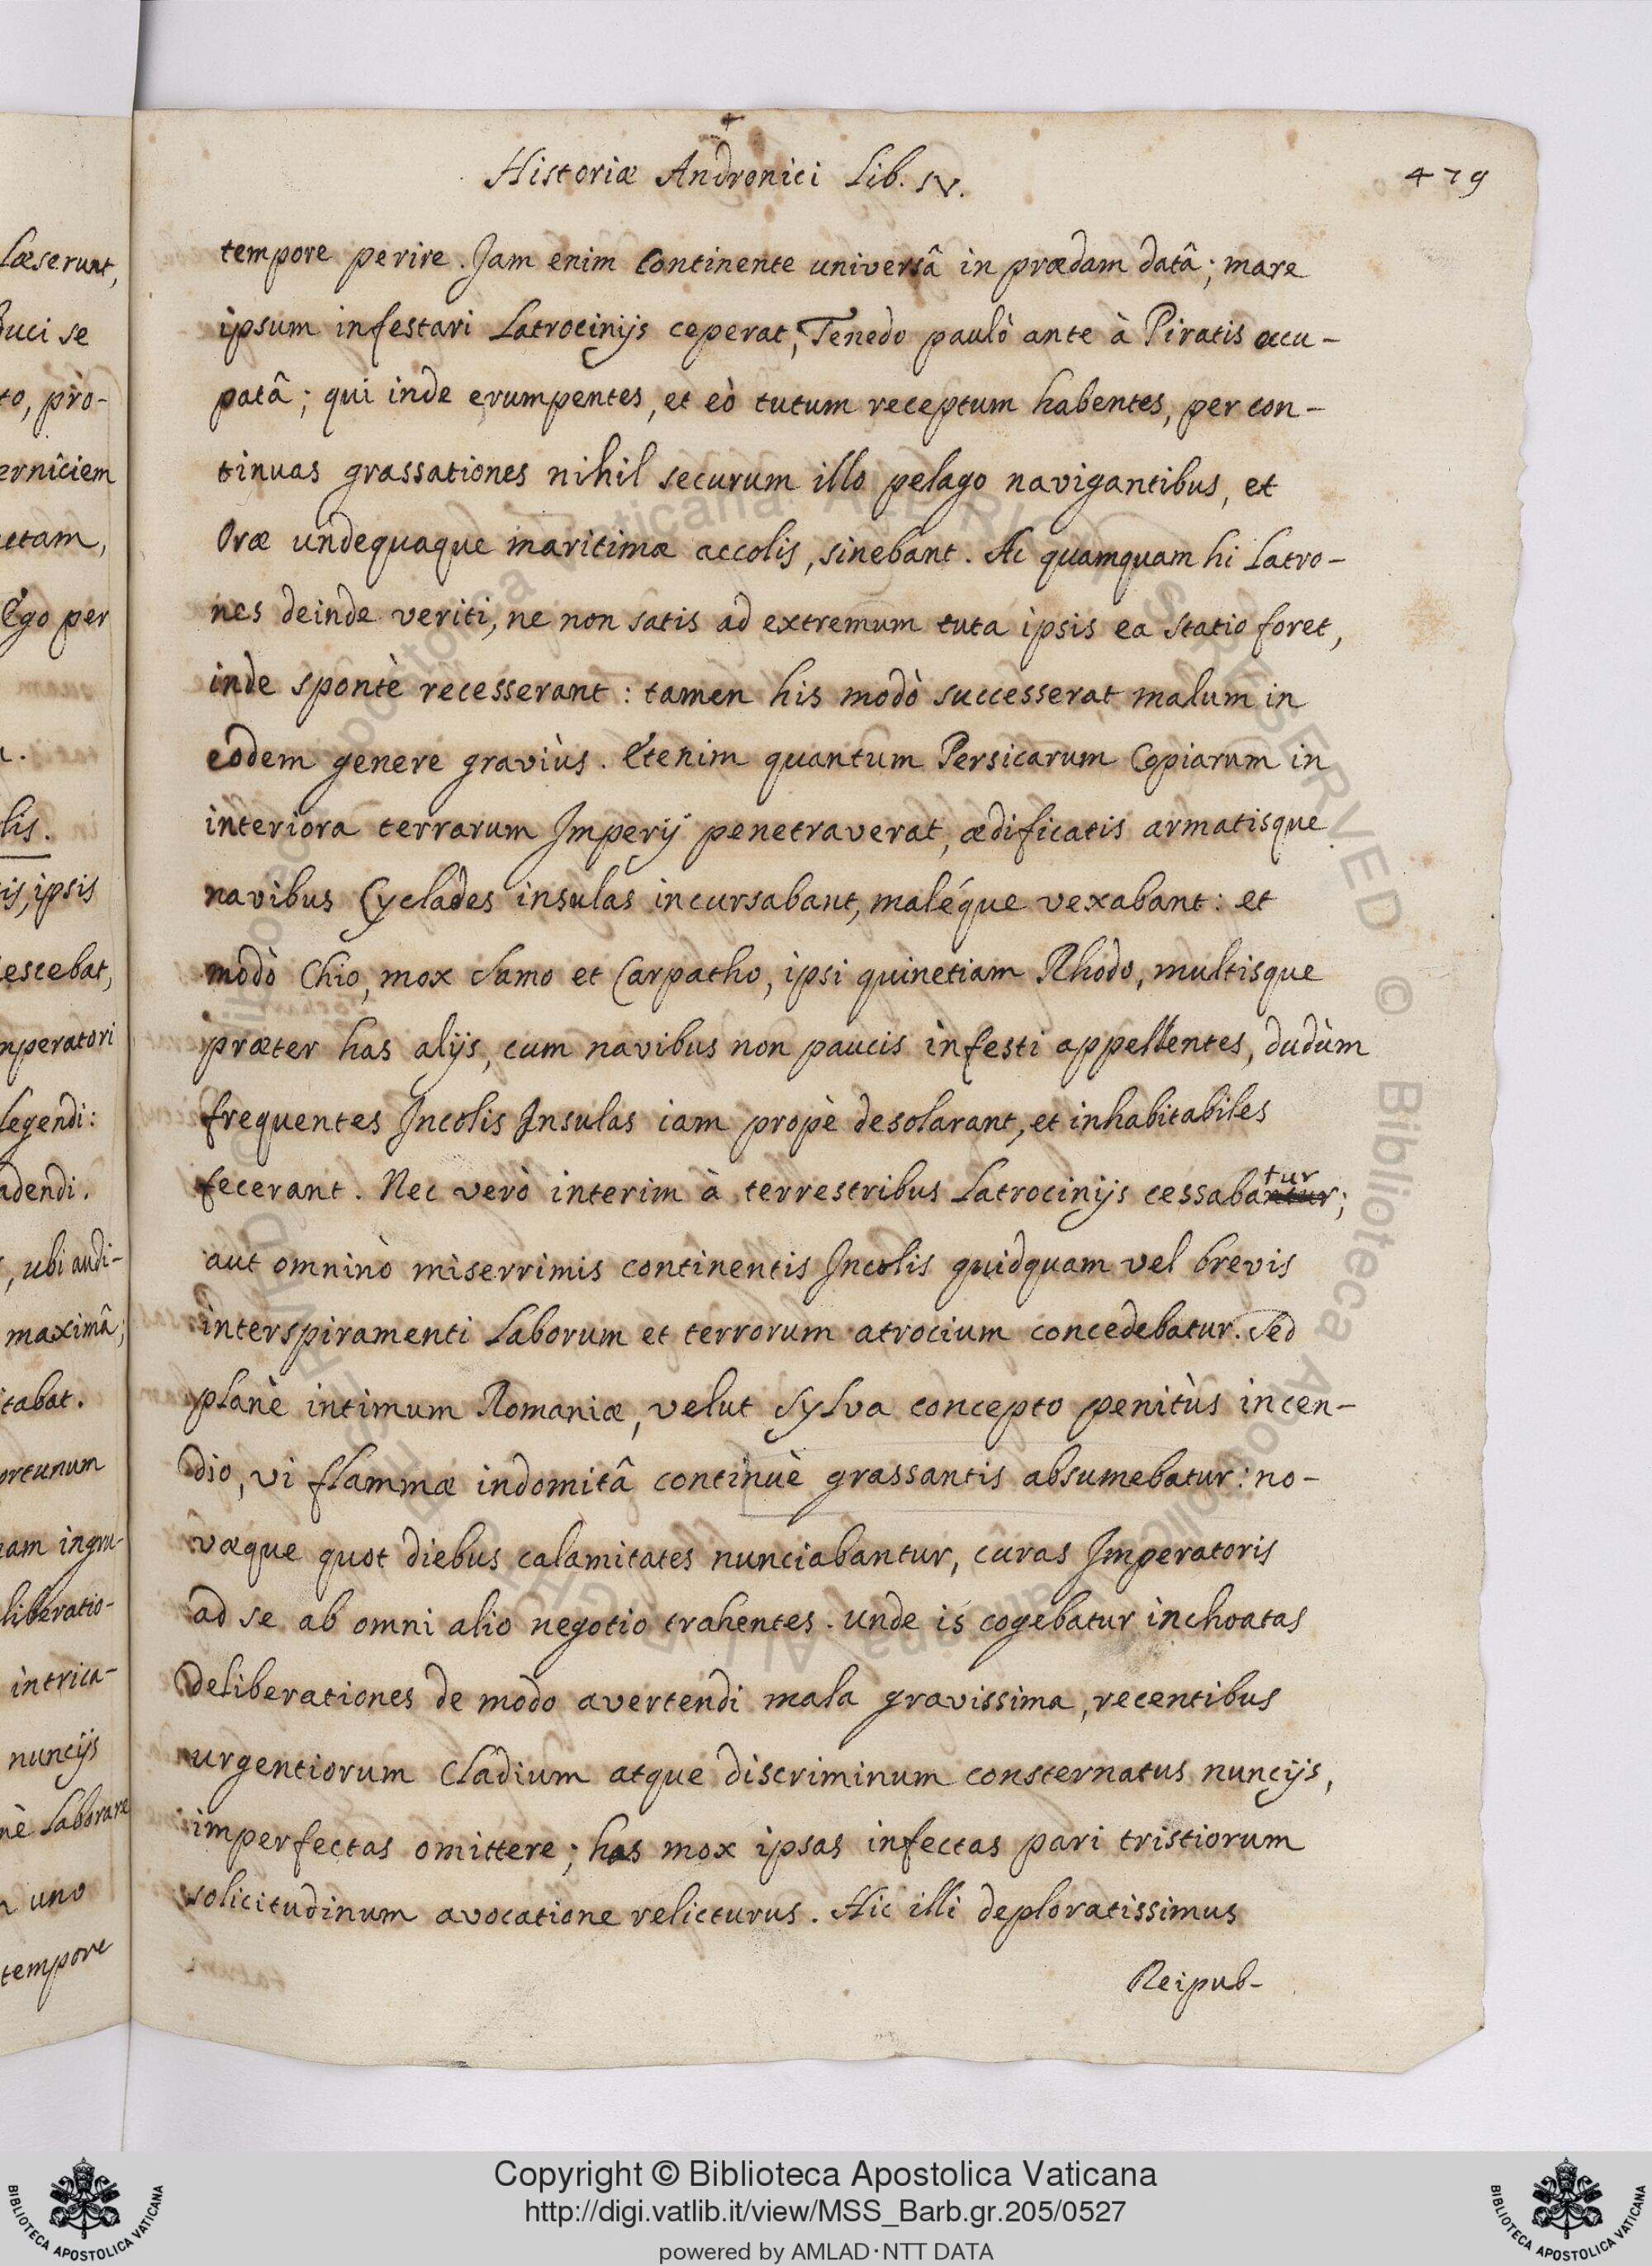 Historiæ Andronici Lib. IV.
479
tempore perire. Jam enim Continente universâ in prædam datâ; mare
ipsum infestari Latrocinijs ceperat, Tenedo paulò ante à Piratis occu-
patâ; qui inde erumpentes, et eò tutum receptum habentes, per con-
tinuas grassationes nihil securum illo pelago navigantibus, et
Oræ undequaque maritimæ accolis, sinebant. Ac quamquam hi Latro-
nes deinde veriti, ne non satis ad extremum tuta ipsis ea statio foret,
inde spontè recesserant: tamen his modò successerat malum in
eodem genere graviùs. Etenim quantum Persicarum Copiarum in
interiora terrarum Imperij penetraverat, ædificatis armatisque
navibus Cyclades insulas incursabant, maléque vexabant: et
modò Chio, mox Samo et Carpatho, ipsi quinetiam Rhodo, multisque
præter has alijs, cum navibus non paucis infesti appellentes, dudùm
frequentes Incolis Insulas iam propè desolarant, et inhabitabiles
fecerant. Nec verò interim à terrestribus Latrocinijs cessabatur;
aut omninò miserrimis continentis Incolis quidquam vel brevis
interspiramenti Laborum et terrorum atrocium concedebatur. Sed
planè intimum Romaniæ, velut Sylva concepto penitùs incen-
dio, vi flammæ indomitâ continuè grassantis absumebatur: no-
væque quot diebus calamitates nunciabantur, curas Imperatoris
ad se ab omni alio negotio trahentes. unde is cogebatur inchoatas
deliberationes de modo avertendi mala gravissima, recentibus
urgentiorum Cladium atque discriminum consternatus nuncijs,
imperfectas omittere; has mox ipsas infectas pari tristiorum
solicitudinum avocatione relicturus. Hic illi deploratissimus
Reipub-
Læserunt,
duci se
to, prò-
erniciem
etam,
Ego per
lis.
is, ipsis
escebat,
mperatori
Legendi:
adendi.
, ubi audi-
maximâ;
itabat.
ortunum
am ingru-
liberatio-
intrica-
nuncijs
nè Laborare
uno
tempore
Copyright © Biblioteca Apostolica Vaticana
http://digi.vatlib.it/view/MSS_Barb.gr.205/0527
powered by AMLAD·NTT DATA
BIBLIOTECA APOSTOLICA VATICANA
BIBLIOTECA APOSTOLICA VATICANA